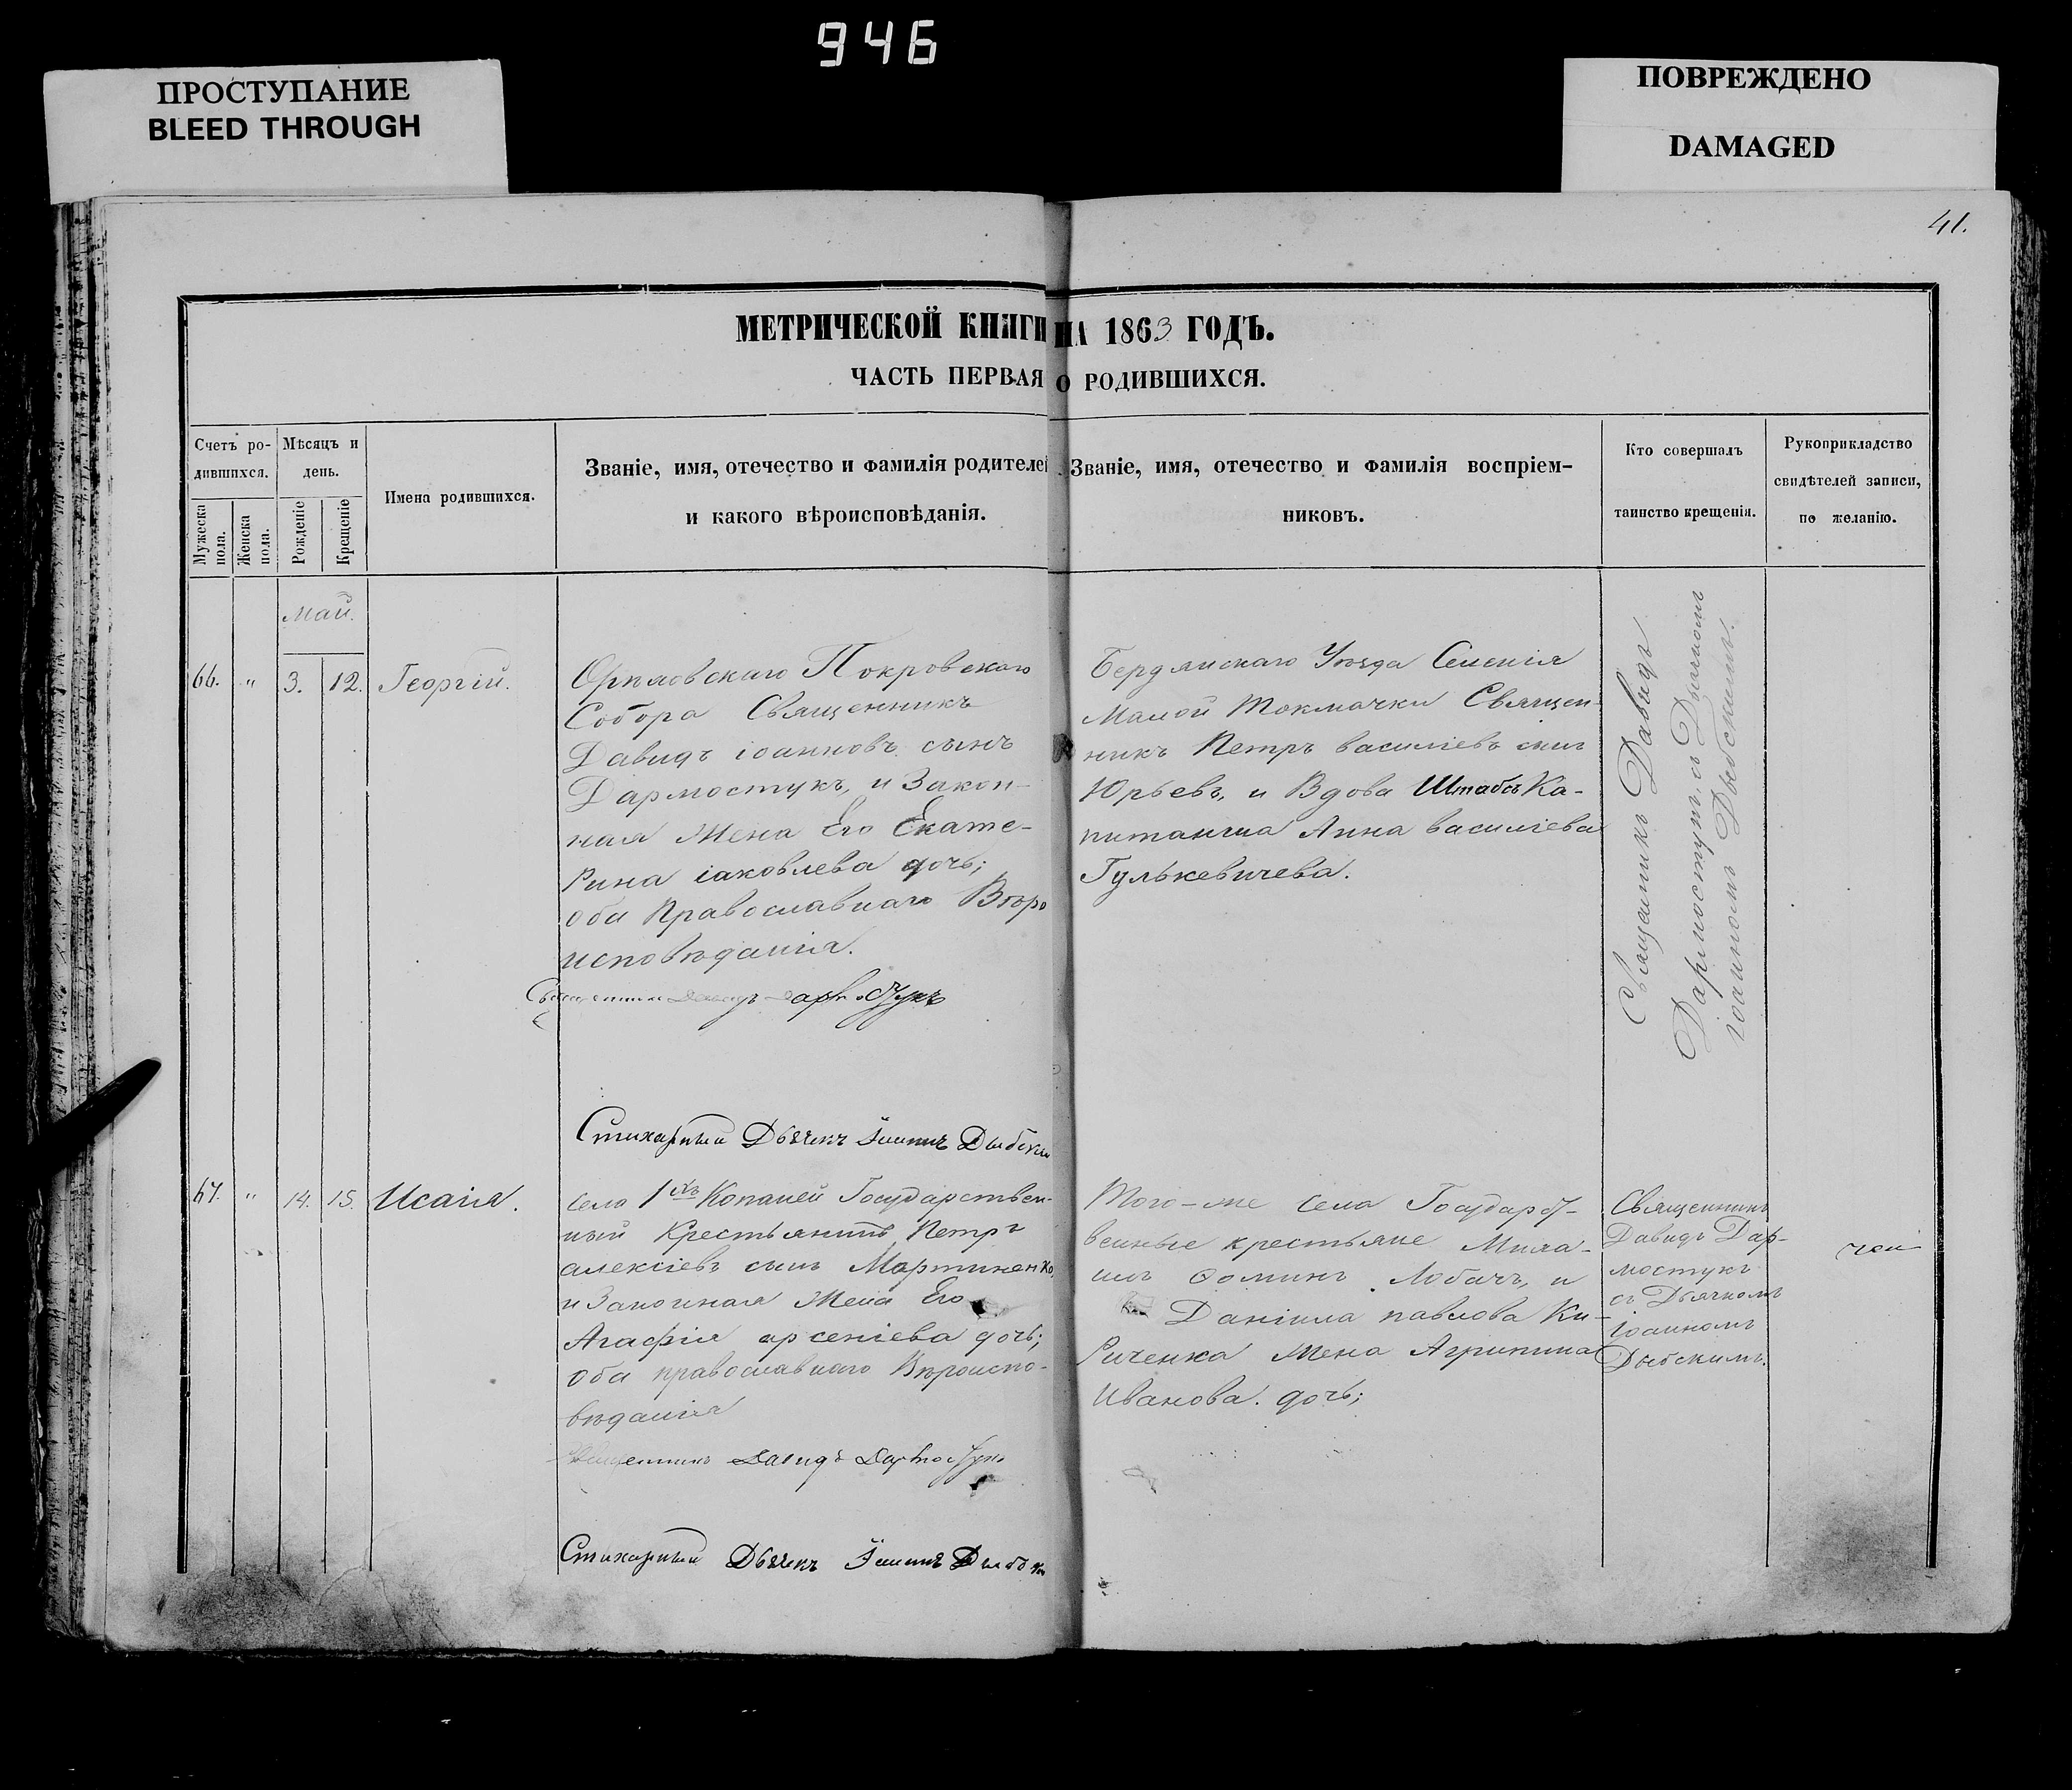 946
ПРОСТУПАНИЕ
BLEED THROUGH
ПОВРЕЖДЕНО
DAMAGED
41.
МЕТРИЧЕСКОЙ КНИГИ НА 1863 ГОДЪ.
ЧАСТЬ ПЕРВАЯ О РОДИВШИХСЯ.
Счетъ ро-
дившихся.
Мужеска
пола.
Женска
пола.
Мѣсяцъ и
день.
Рожденіе
Крещеніе
Имена родившихся.
Званіе, имя, отечество и фамилія родителей
и какого вѣроисповѣданія.
Званіе, имя, отечество и фамилія воспріем-
никовъ.
Кто совершалъ
таинство крещенія.
Рукоприкладство
свидѣтелей записи,
по желанію.
Май.
66. " 3. 12. Георгій.
Орѣховскаго Покровскаго
Собора Священникъ
Давидъ іоанновъ сынъ
Дармостукъ, и Закон-
ная Жена Его Екате-
рина іаковлева дочь;
оба Православнаго Вѣро
исповѣданія.
Священникъ Давидъ Дармостукъ
Стихарный Дьячекъ Іоаннъ Дыбскій
Бердянскаго Уѣзда Селенія
Малой Токмачки Священ-
никъ Петръ василіевъ сынъ
Юрьевъ, и Вдова Штабсъ Ка-
питанша Анна василіева
Гулькевичева.
Священникъ Давидъ
Дармостукъ, съ Дьячкомъ
іоанномъ Дыбскимъ.
67. " 14. 15. Исаія.
села 1хъ Копаней Государствен-
ный Крестьянинъ Петръ
алексіевъ сынъ Мартиненко,
и Законная Жена Его
Агафія арсеніева дочь;
оба православнаго Вѣроиспо-
вѣданія
Священникъ Давидъ Дармостукъ
Стихарный Дьячекъ Іоаннъ Дыбскій
Того-же села Государст-
венные крестьяне
Ѳоминъ Лобачъ, и
Даніила павлова Ки-
риченка Жена Агрипина
Иванова дочь;
Священникъ
Давидъ Дар-
мостукъ
съ Дьячкомъ
іоанномъ
Дыбскимъ.